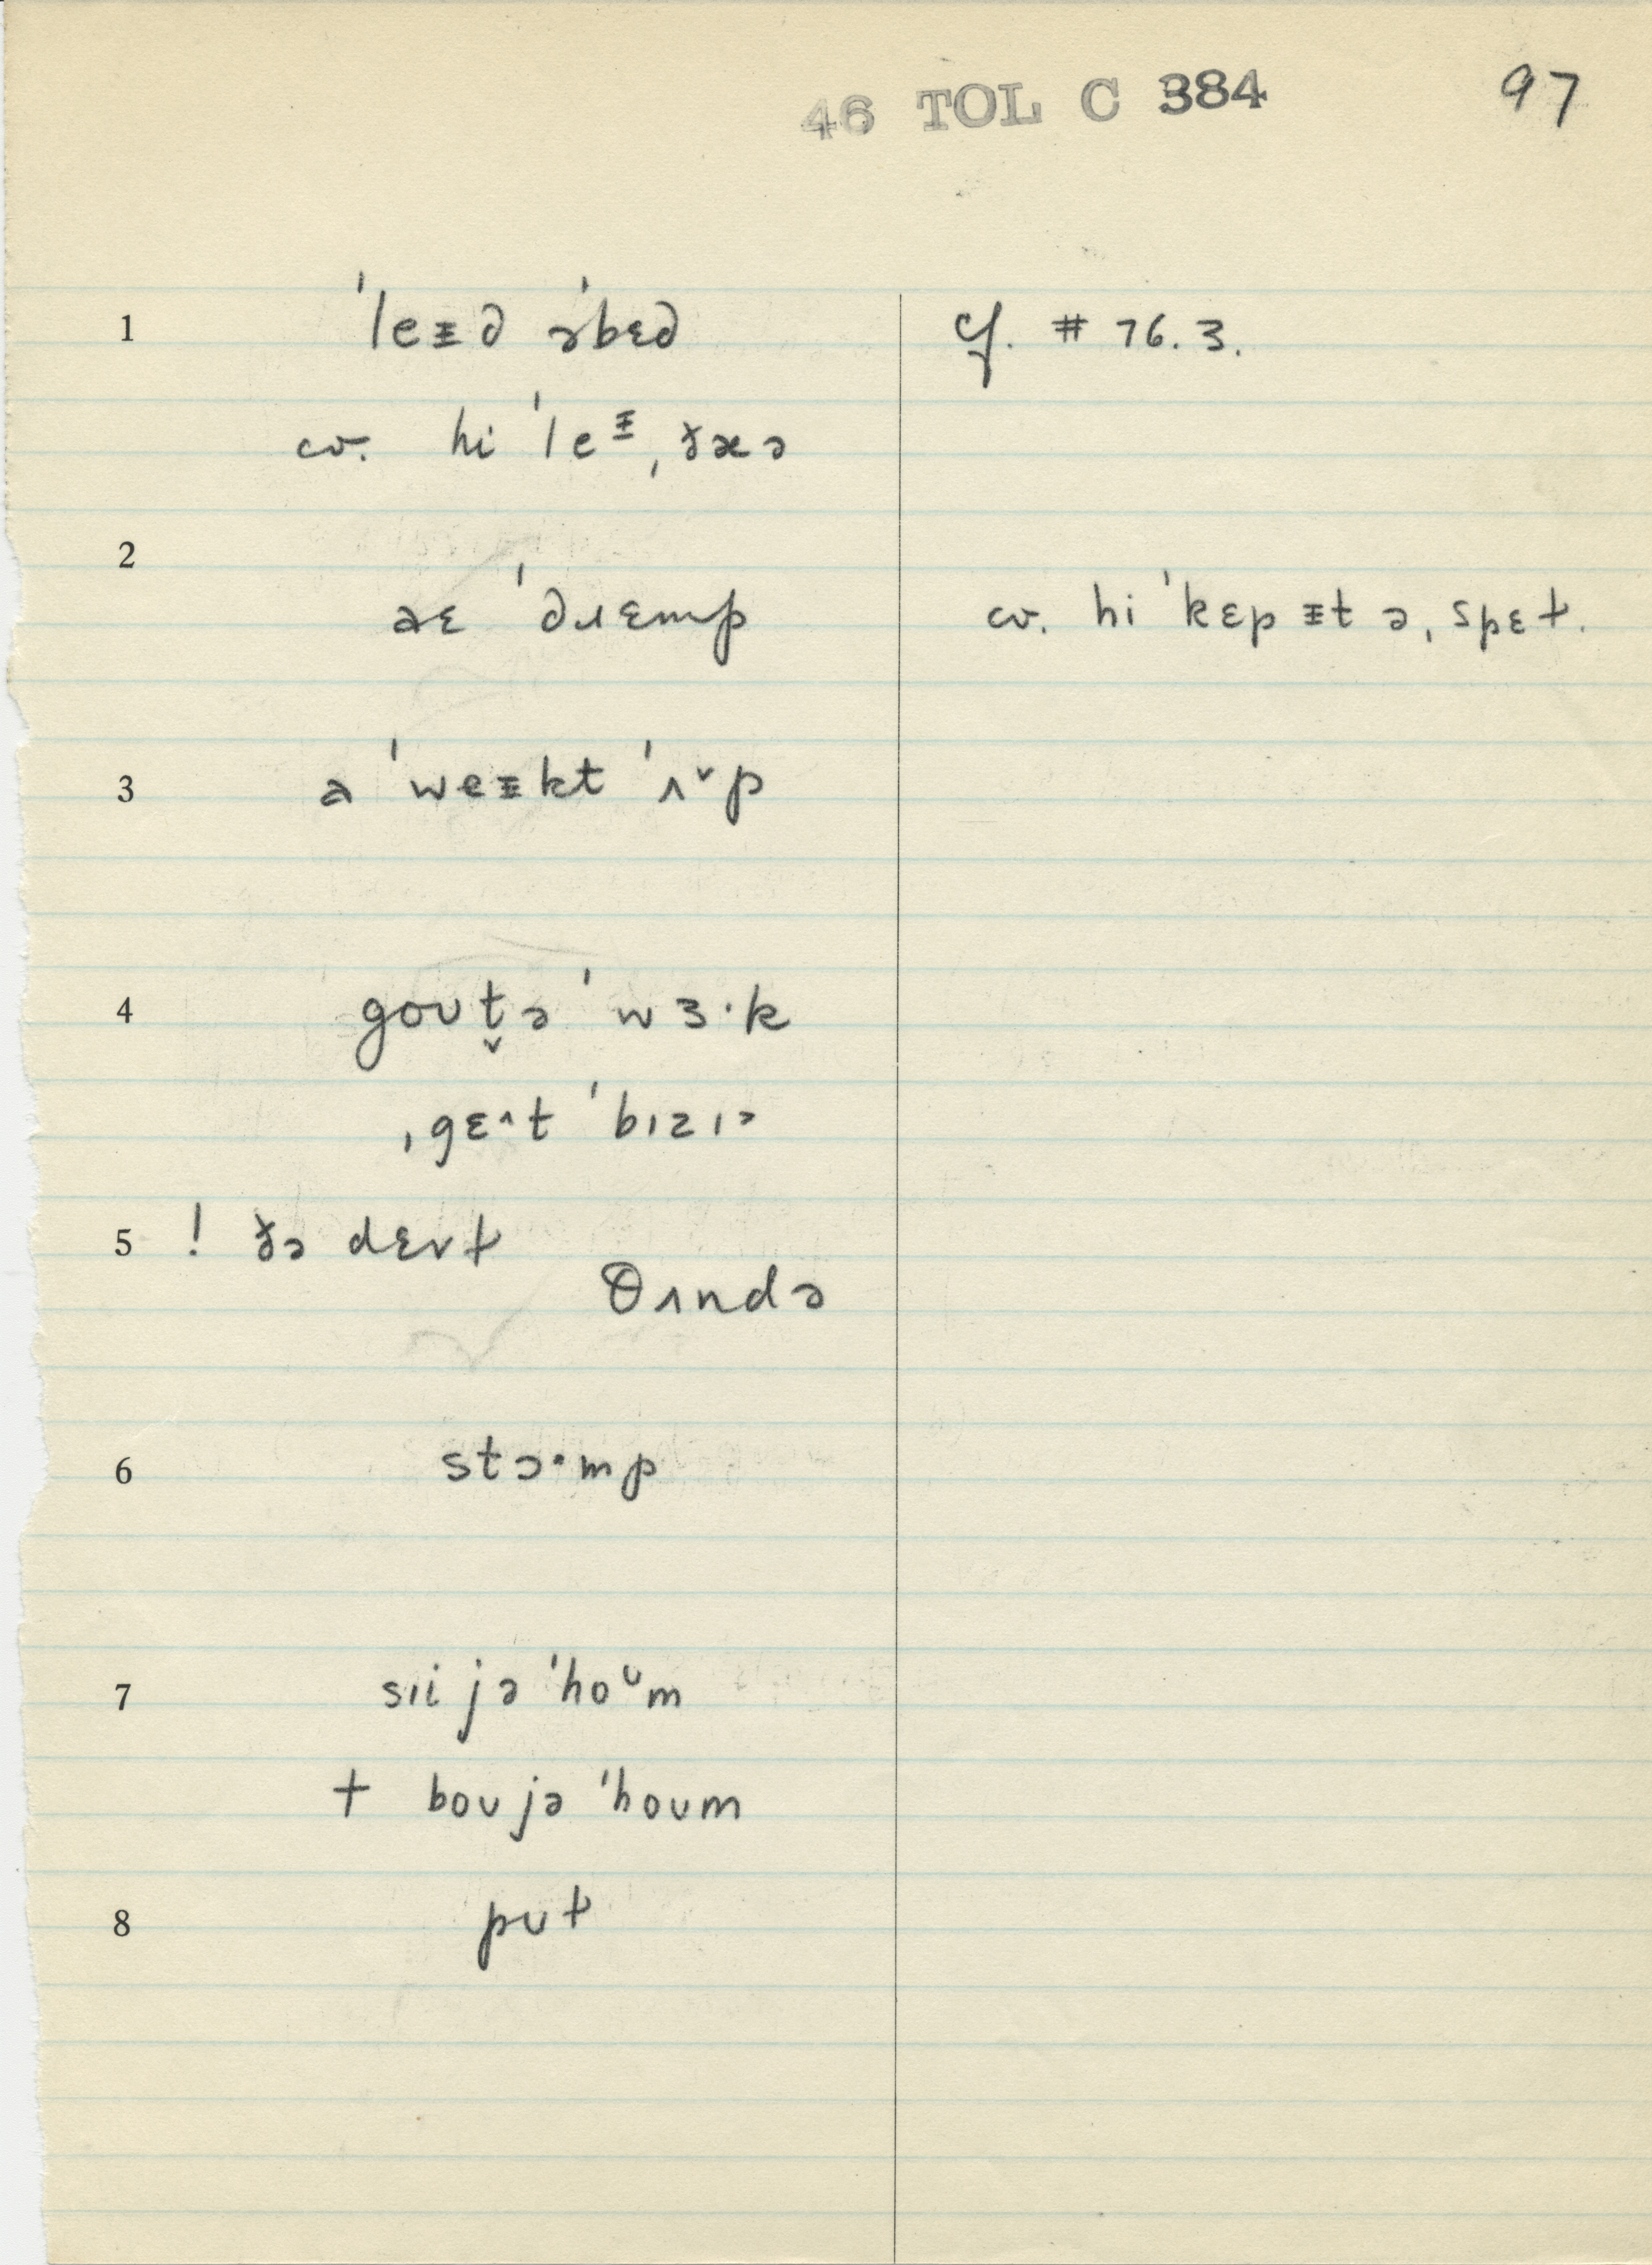 46 TOL C 384 97
1 ˈleᵻd əˈbɛd cf. # 76.3.
cv. hi ˈleᵻˌðæə
2
aɛ ˈdɹɛmp cv. hi ˈkɛp ᵻt əˌspɛɫ.
3 a ˈweᵻkt ˈʌˇp
4 goʊt̬ə ˈwɜ·k
ˌgɛ^t ˈbɪzɪɔ
5 ! ðə dɛvɫ
θʌndə
6 stɔ·mp
7 sɪi jə ˈhoᶷm
† boʊ jə ˈhoʊm
8 pʊɫ